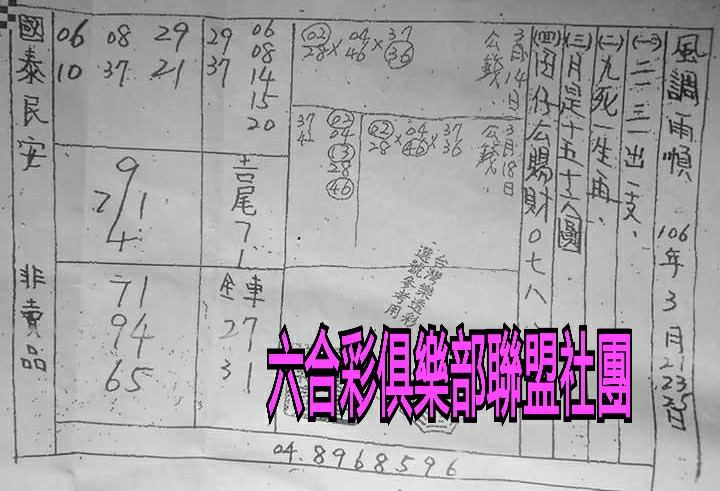 風調雨順 106年3月21.23.25日
(一)二三出一支、
(二)九死一生再、
(三)月是十五十六圓
(四)囝仔公賜財0七八
3月14日
公錢
02 04 37
28×46×36
3月18日
公錢
02 04 37
28×46×36
37 02
42 04
13
28
46
29 06
37 08
14
15
20
06 08 29
10 37 21
吉尾71
全車
27
31
9
2/1
4
71
94
65
國泰民安 非賣品
台灣樂透彩
選號參考用
六合彩俱樂部聯盟社團
04.8968596